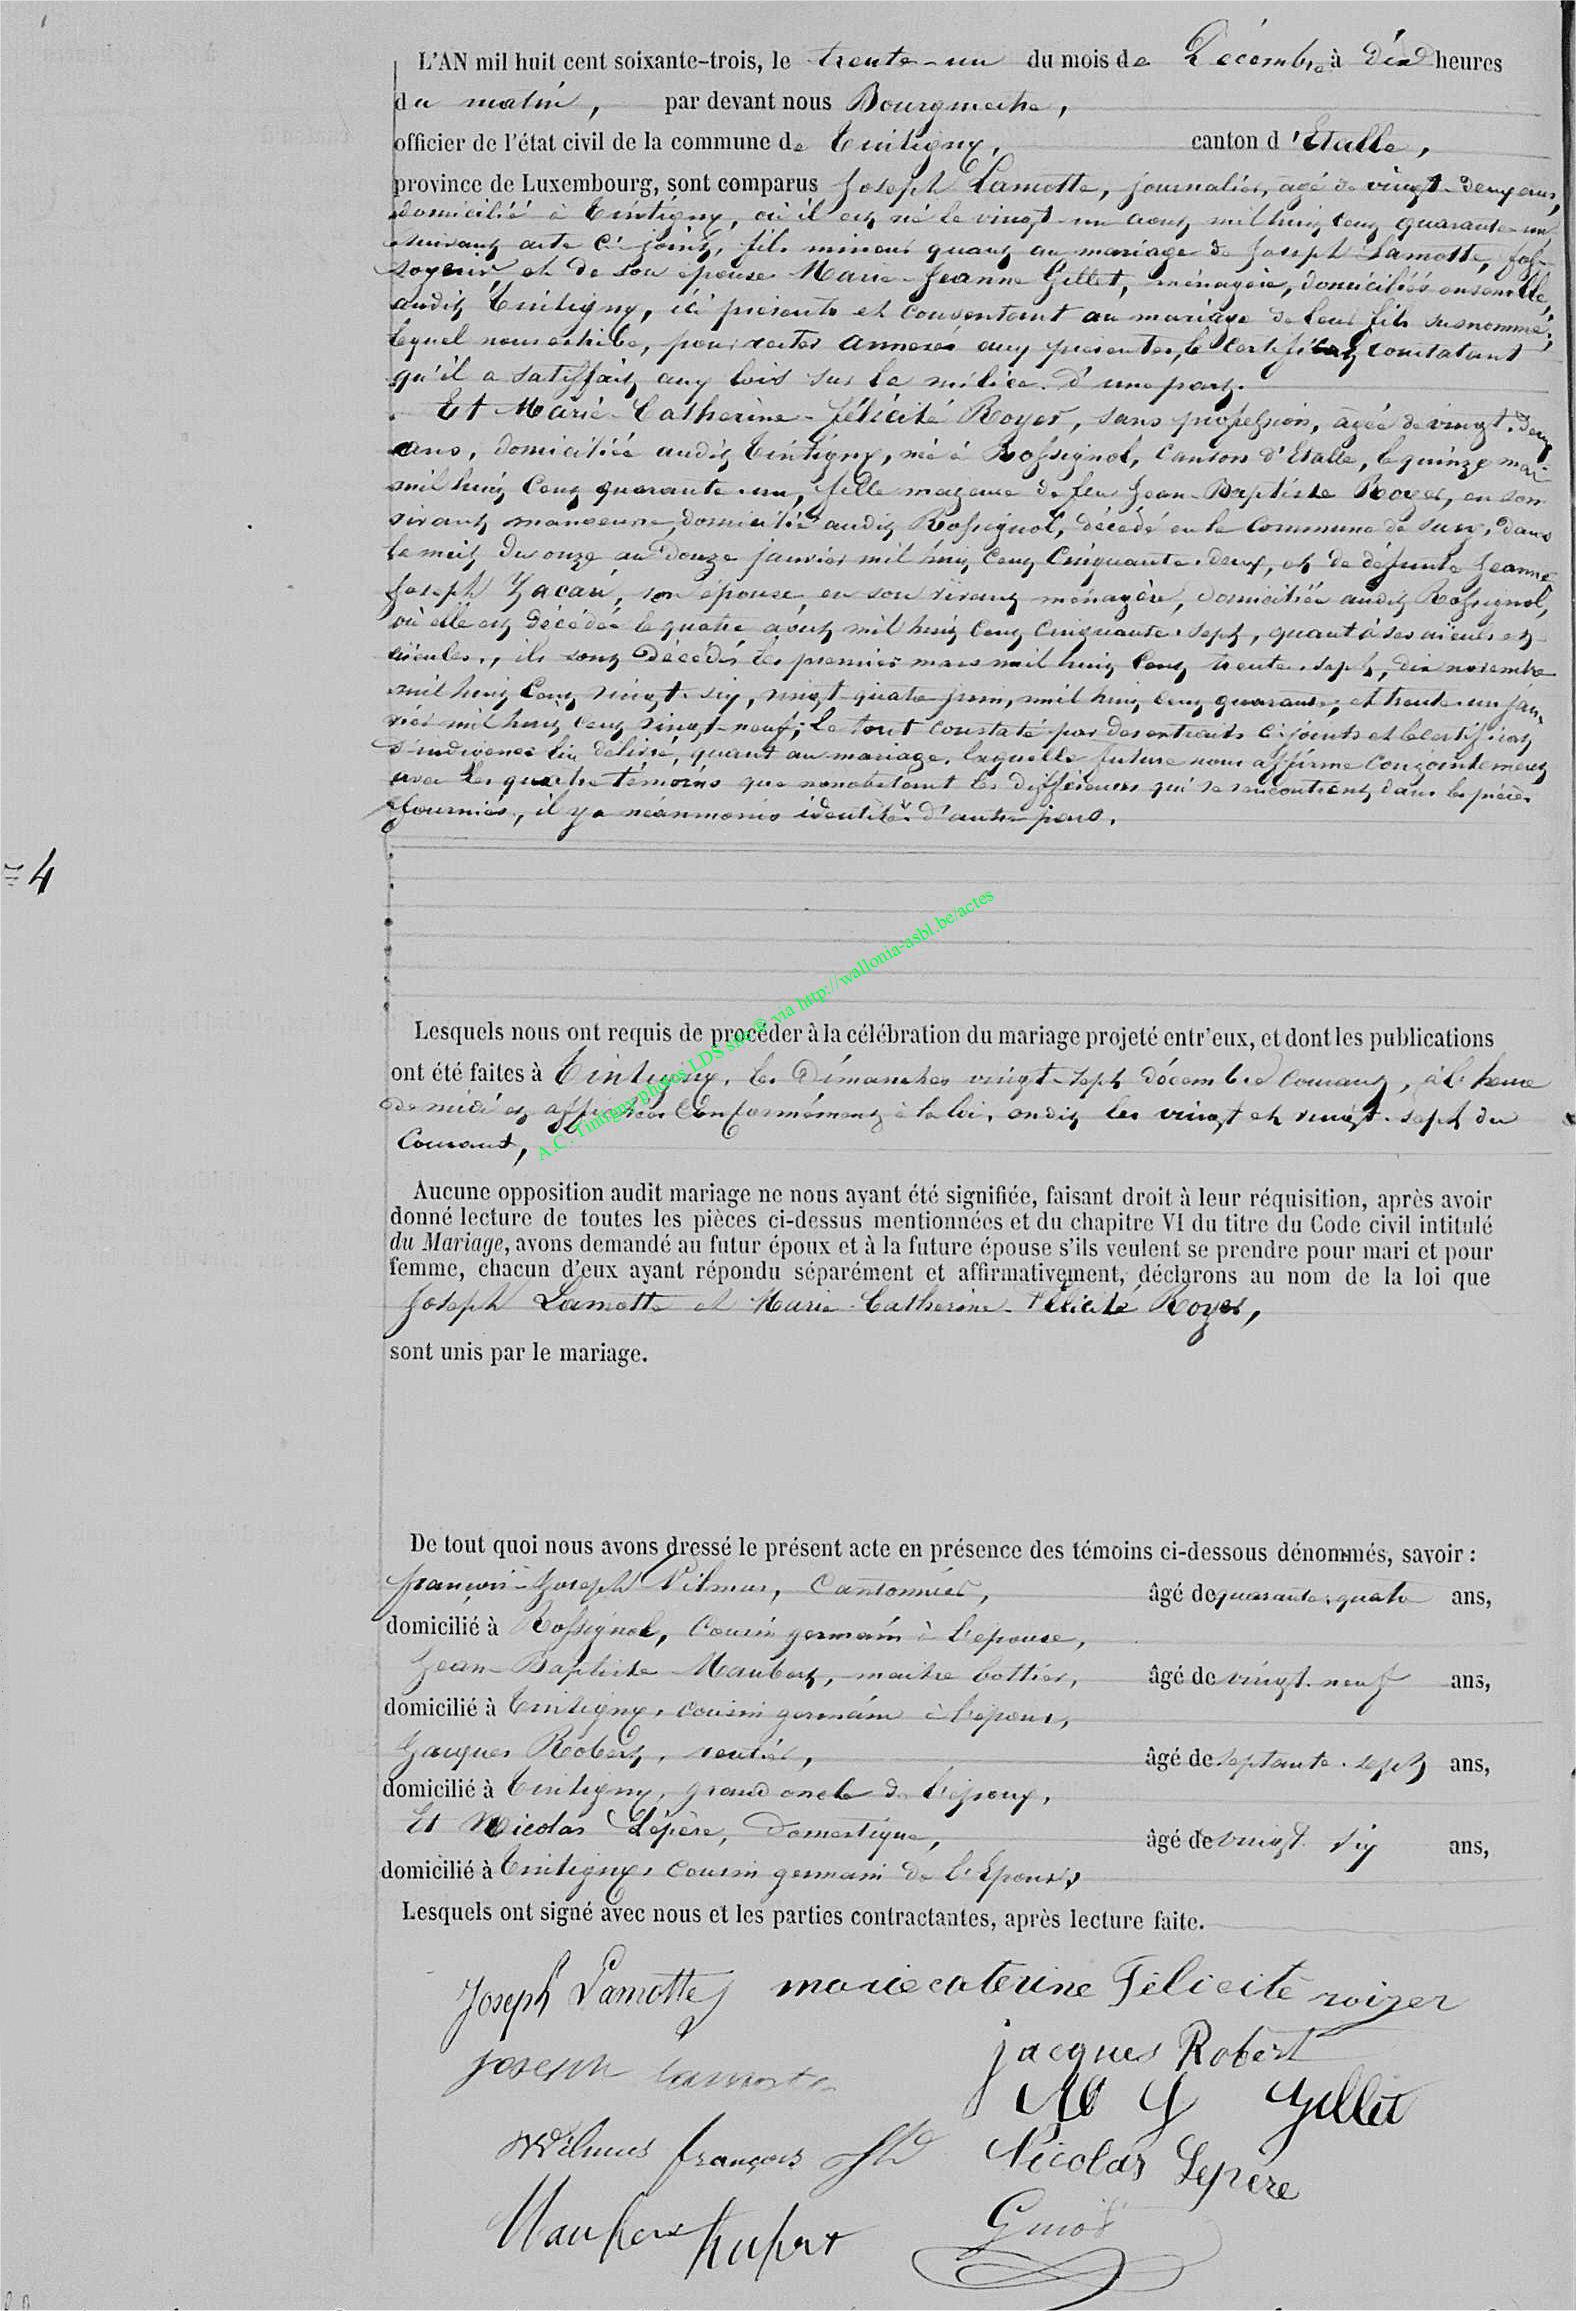 L'AN mil huit cent soixante-trois, le trente-un du mois de Décembre à dix heures
du matin, par devant nous Bourgmestre,
officier de l'état civil de la commune de Tintigny, canton d'Etalle,
province de Luxembourg, sont comparus Joseph Lamotte, journalier, agé de vingt-deux ans,
domicilié à Tintigny, où il est né le vingt-un aout mil huit cent quarante-un
suivant acte ci-joint, fils mineur quant au mariage de Joseph Lamotte, fos-
soyeur, et de son épouse Marie-Jeanne Gillet, ménagère, domiciliés ensemble,
audit Tintigny, ici présents et consentant au mariage de leur fils susnommé;
lequel nous exhibe, pour rester annexé aux présentes, le certificat constatant
qu'il a satisfait aux lois sur la milice. D'une part.
Et Marie-Catherine-Félicité Royer, sans profession, agée de vingt-deux
ans, domiciliée audit Tintigny, née à Rossignol, Canton d'Etalle, le quinze mai
mil huit cent quarante-un, fille majeure de feu Jean-Baptiste Royer, en son
vivant manoeuvre, domicilié audit Rossignol, décédé en la commune de Suxy, dans
la nuit du onze au douze janvier mil huit cent cinquante-deux, et de défunte Jeanne
Joseph Jacari, son épouse, en son vivant ménagère, domiciliée audit Rossignol,
où elle est décédée le quatre août mil huit cent cinquante-sept, quant à ses aieuls et
aieules, ils sont décédés les premier mars mil huit cent trente-sept, dix novembre
mil huit cent vingt-six, vingt-quatre juin, mil huit cent quarante, et trente-un jan-
vier mil huit cent vingt-neuf; le tout constaté par des extraits ci-joints et le certificat
d'indigence lui délivré, quant au mariage. laquelle future nous affirme conjointement
avec les quatre témoins que nonobstant les différences qui se rencontrent dans les pièces
fournies, il y a néanmoins identité. D'autre part.
=4
Lesquels nous ont requis de procéder à la célébration du mariage projeté entr'eux, et dont les publications
ont été faites à Tintigny, les Dimanches vingt-sept décembre courant, à l'heure
de midi et affichées conformément à la loi, endit les vingt et vingt-sept du
Courant,
Aucune opposition audit mariage ne nous ayant été signifiée, faisant droit à leur réquisition, après avoir
donné lecture de toutes les pièces ci-dessus mentionnées et du chapitre VI du titre du Code civil intitulé
du Mariage, avons demandé au futur époux et à la future épouse s'ils veulent se prendre pour mari et pour
femme, chacun d'eux ayant répondu séparément et affirmativement, déclarons au nom de la loi que
Joseph Lamotte et Marie-Catherine-Félicité Royer,
sont unis par le mariage.
De tout quoi nous avons dressé le présent acte en présence des témoins ci-dessous dénommés, savoir :
françois-Joseph Vilmus, Cantonnier, âgé de quarante-quatre ans,
domicilié à Rossignol, Cousin germain à l'épouse,
Jean-Baptiste Maubert, maitre bottier, âgé de vingt-neuf ans,
domicilié à Tintigny, cousin germain à l'époux,
Jacques Robert, rentier, âgé de septante-sept ans,
domicilié à Tintigny, grand oncle de l'époux,
Et Nicolas Lépère, Domestique, âgé de vingt-six ans,
domicilié à Tintigny, Cousin germain de l'Epoux,
Lesquels ont signé avec nous et les parties contractantes, après lecture faite.
Joseph Lamotte marie caterine Félicité roizer
joseph lamotte jacques Robert
M J Gillet
Wilmus françois Nicolas Lepère
Maubert hubert Guiot
A.C. Tintigny photos LDS site © via http://wallonia-asbl.be/actes